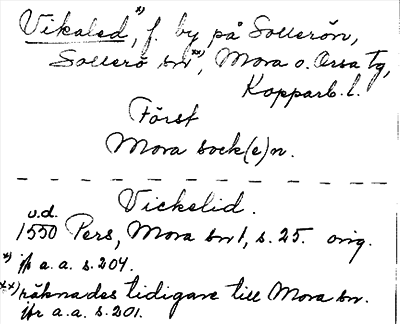 Vikaled *), f. by på Sollerön,
Sollerö sn **), Mora o. Orsa tg,
Kopparb. l.
Först
Mora sock(e)n.
Vickelid.
u.d.
1550 Pers, Mora sn 1, s. 25. orig.
*) jfr a. a. s. 204.
**) räknades tidigare till Mora sn.
jfr a. a. s. 201.